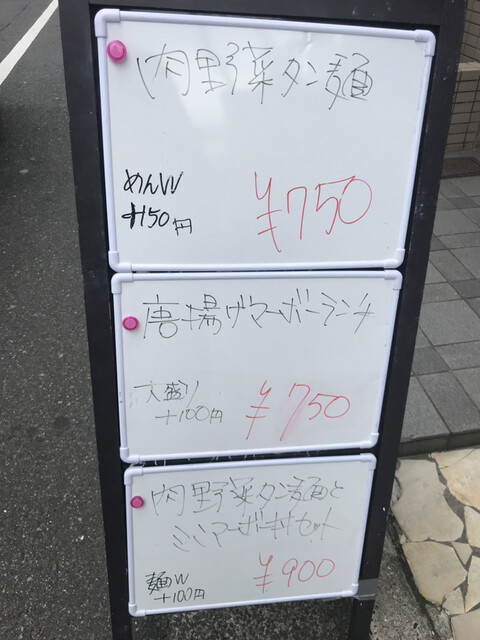 肉野菜タン麺
めんW
+150円
¥750
唐揚げマーボーランチ
大盛り
+100円
¥750
肉野菜タン麺と
ミニマーボー丼セット
麺W
+100円
¥900